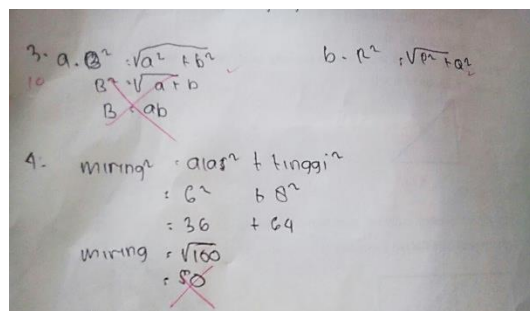 3. a. B² = √a² + b²
10
B² = √a + b
B = ab
b. R² = √P² + Q²
4. miring² = alas² + tinggi²
= 6² + 8²
= 36 + 64
miring = √100
= 50